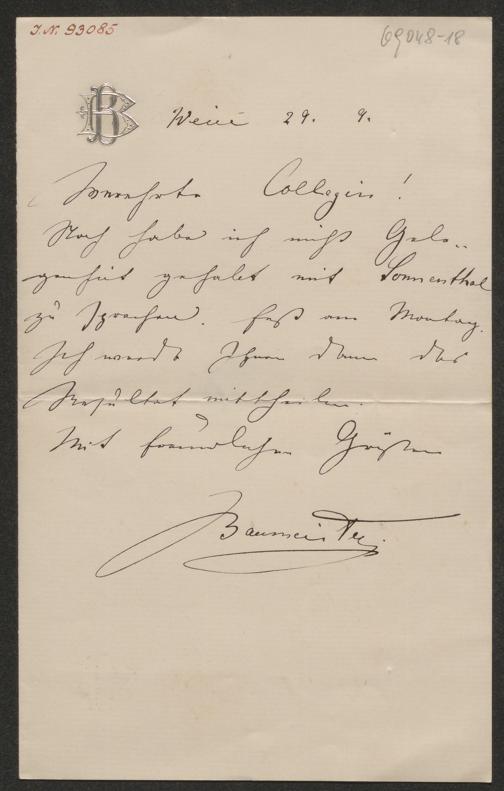 I. N. 93085
69048-18
BB
Wien 29. 9.
Verehrte Collegin!
Noch habe ich nicht Gele-
genheit gehabt mit Sonnenthal
zu sprechen. Erst am Montag.
Ich werde Ihnen dann das
Resultat mittheilen.
Mit freundlichen Grüßen
Baumeister.